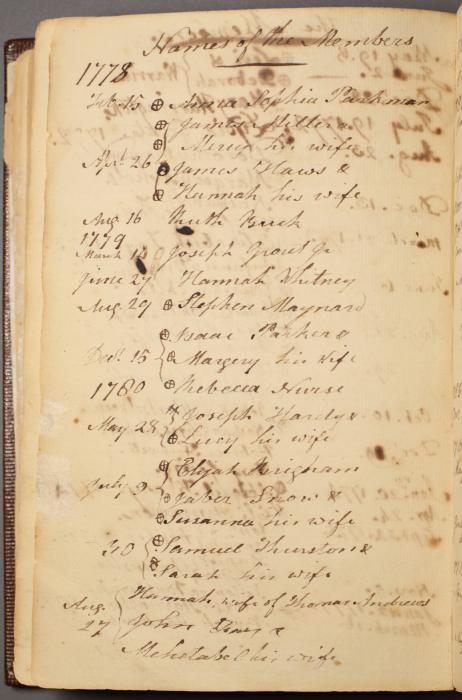 Names of the Members
1778
Feb. 15 ⊕ Anna Sophia Parkman
⊕ James Miller &
⊕ Mercy his wife
Apr. 26 James Haws &
⊕ Hannah his wife
Aug. 16 Ruth Buck
1779
March 14 Joseph Grout Jr
June 27 Hannah Whitney
Aug. 29 ⊕ Stephen Maynard
⊕ Isaac Parker &
Decr. 15 ⊕ Margery his wife
1780 ⊕ Rebecca Nurse
Joseph Hardy &
May 28 ⊕ Lucy his wife
⊕ Elijah Brigham
July 9 ⊕ Jaber Snow &
⊕ Susanna his wife
30 ⊕ Samuel Thurston &
⊕ Sarah his wife
Hannah, wife of Thomas Andrews
Aug. 27 John &
Mehetabel his wife